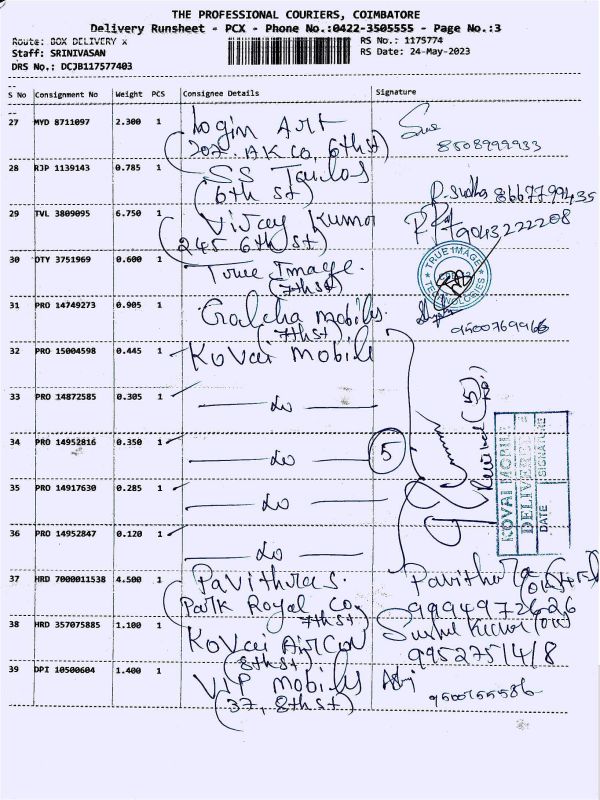 THE PROFESSIONAL COURIERS, COIMBATORE
Delivery Runsheet - PCX - Phone No.:0422-3505555 - Page No.:3
Route: BOX DELIVERY x
RS No.: 1175774
Staff: SRINIVASAN
RS Date: 24-May-2023
DRS No.: DCJB117577403
S No Consignment No Weight PCS Consignee Details Signature
27 MYD 8711097 2.300 1 Login Art
(202. AK Co, 6th st)
8508999933
28 RJP 1139143 0.785 1 SS
(6th st)
R. Sudha 8667799435
29 TVL 3809095 6.750 1 Vijay Kumar
245 6th st)
9043222208
30 OTY 3751969 0.600 1 True Image.
(7th st)
TRUE IMAGE TECHNOLOGIES
31 PRO 14749273 0.905 1 mobiles.
(7th st)
9500769966
32 PRO 15004598 0.445 1 Kovai mobile
33 PRO 14872585 0.305 1 Do
34 PRO 14952816 0.350 1 Do
5
Received (5)
KOVAI MOBILE
DELIVERED
DATE SIGNATURE
35 PRO 14917630 0.285 1 Do
36 PRO 14952847 0.120 1 Do
37 HRD 7000011538 4.500 1 Pavithras. Pavithra
(Park Royal Co,
7th st)
9994972626
38 HRD 357075885 1.100 1 Kovai Aircon
(8th st)
9952751418
39 DPI 10500604 1.400 1 VIP mobiles
(37, 8th st)
9500755586